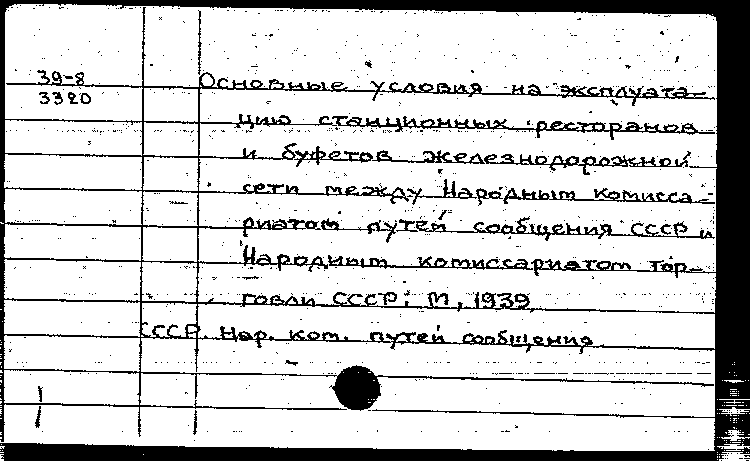 39-8
3320
Основные условия на эксплуата-
цию станционных ресторанов
и буфетов железнодорожной
сети между Народным комисса-
риатом путей сообщения СССР и
Народным комиссариатом тор-
говли СССР. М., 1939.
СССР. Нар. ком. путей сообщения